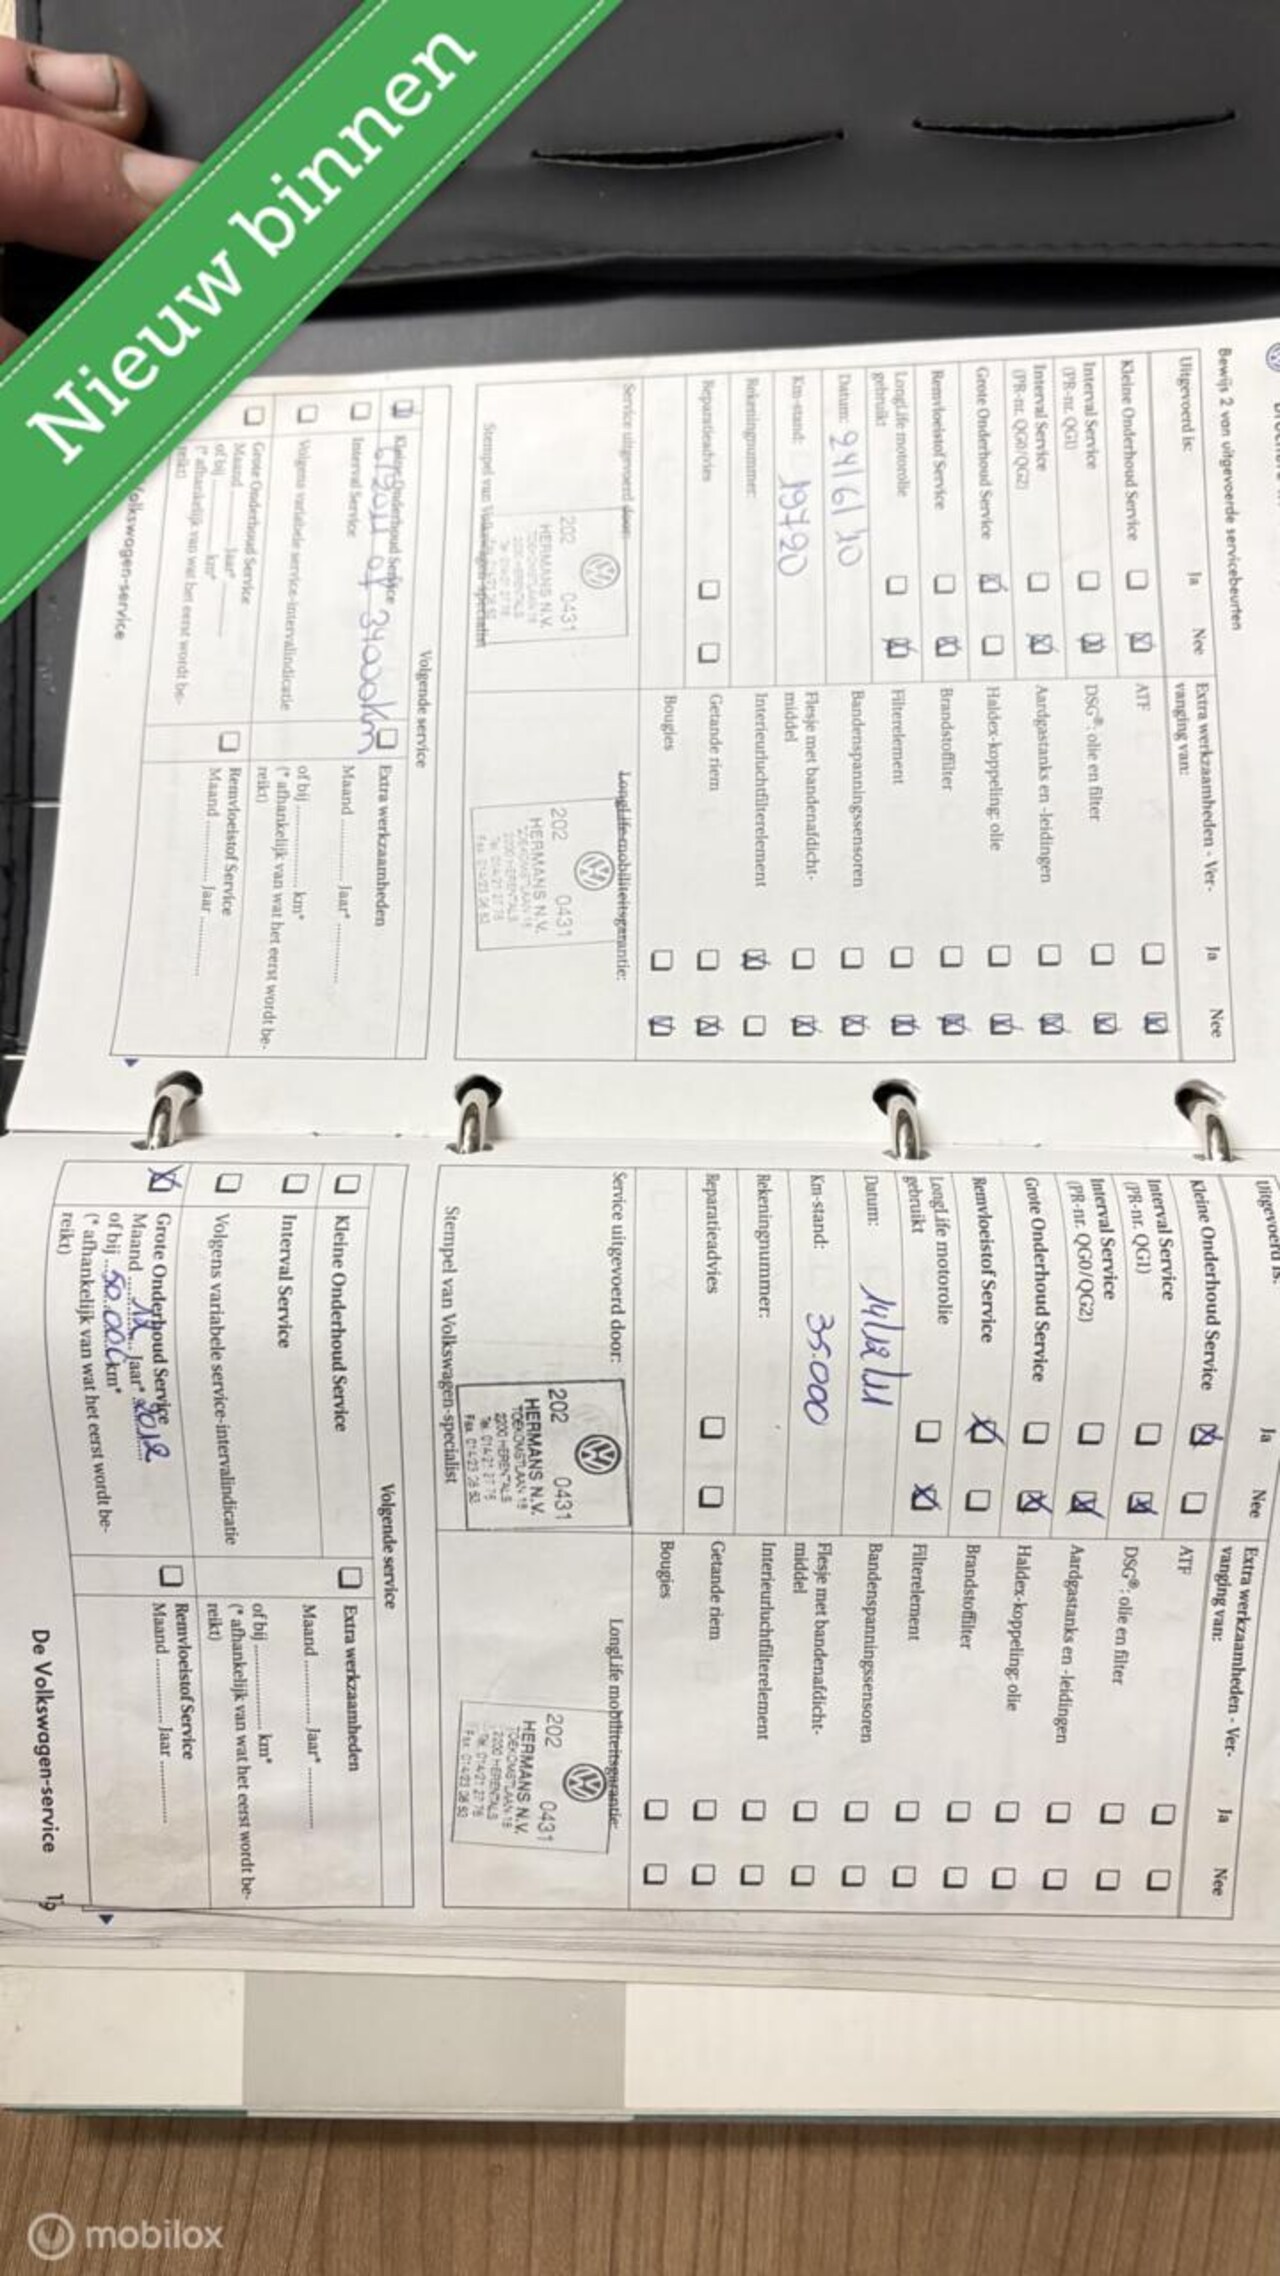 Nieuw binnen
Bewijs 2 van uitgevoerde servicebeurten
Uitgevoerd is:
Ja
Nee
Extra werkzaamheden - Ver-
vanging van:
Ja
Nee
Kleine Onderhoud Service
ATF
Interval Service
(PR-nr. QG1)
DSG®: olie en filter
Interval Service
(PR-nr. QG0/QG2)
Aardgastanks en -leidingen
Grote Onderhoud Service
Haldex-koppeling: olie
Remvloeistof Service
Brandstoffilter
LongLife motorolie
gebruikt
Filterelement
Datum: 24/6/10
Bandenspanningssensoren
Km-stand: 19720
Flesje met bandenafdicht-
middel
Rekeningnummer:
Interieurluchtfilterelement
Reparatieadvies
Getande riem
Bougies
Service uitgevoerd door:
LongLife mobiliteitsgarantie:
202 0431
HERMANS N.V.
TOEKOMSTLAAN 18
2200 HERENTALS
202 0431
HERMANS N.V.
TOEKOMSTLAAN 18
2200 HERENTALS
Tel. 014/21 27 76
Stempel van Volkswagen-specialist
Volgende service
Kleine Onderhoud Service
of 34000km
Extra werkzaamheden
Interval Service
Maand Jaar*
Volgens variabele service-intervalindicatie
of bij km*
(* afhankelijk van wat het eerst wordt be-
reikt)
Grote Onderhoud Service
Maand Jaar*
of bij km*
(* afhankelijk van wat het eerst wordt be-
reikt)
Remvloeistof Service
Maand Jaar
Volkswagen-service
Uitgevoerd is:
Ja
Nee
Extra werkzaamheden - Ver-
vanging van:
Ja
Nee
Kleine Onderhoud Service
ATF
Interval Service
(PR-nr. QG1)
DSG®: olie en filter
Interval Service
(PR-nr. QG0/QG2)
Aardgastanks en -leidingen
Grote Onderhoud Service
Haldex-koppeling: olie
Remvloeistof Service
Brandstoffilter
LongLife motorolie
gebruikt
Filterelement
Datum: 14/12/11
Bandenspanningssensoren
Km-stand: 35.000
Flesje met bandenafdicht-
middel
Rekeningnummer:
Interieurluchtfilterelement
Reparatieadvies
Getande riem
Bougies
Service uitgevoerd door:
LongLife mobiliteitsgarantie:
202 0431
HERMANS N.V.
TOEKOMSTLAAN 18
2200 HERENTALS
Tel. 014/21 27 76
202 0431
HERMANS N.V.
TOEKOMSTLAAN 18
2200 HERENTALS
Tel. 014/21 27 76
Stempel van Volkswagen-specialist
Volgende service
Kleine Onderhoud Service
Extra werkzaamheden
Interval Service
Maand Jaar*
Volgens variabele service-intervalindicatie
of bij km*
(* afhankelijk van wat het eerst wordt be-
reikt)
Grote Onderhoud Service
Maand 12 Jaar* 2012
of bij 50.000 km*
(* afhankelijk van wat het eerst wordt be-
reikt)
Remvloeistof Service
Maand Jaar
De Volkswagen-service 19
mobilox